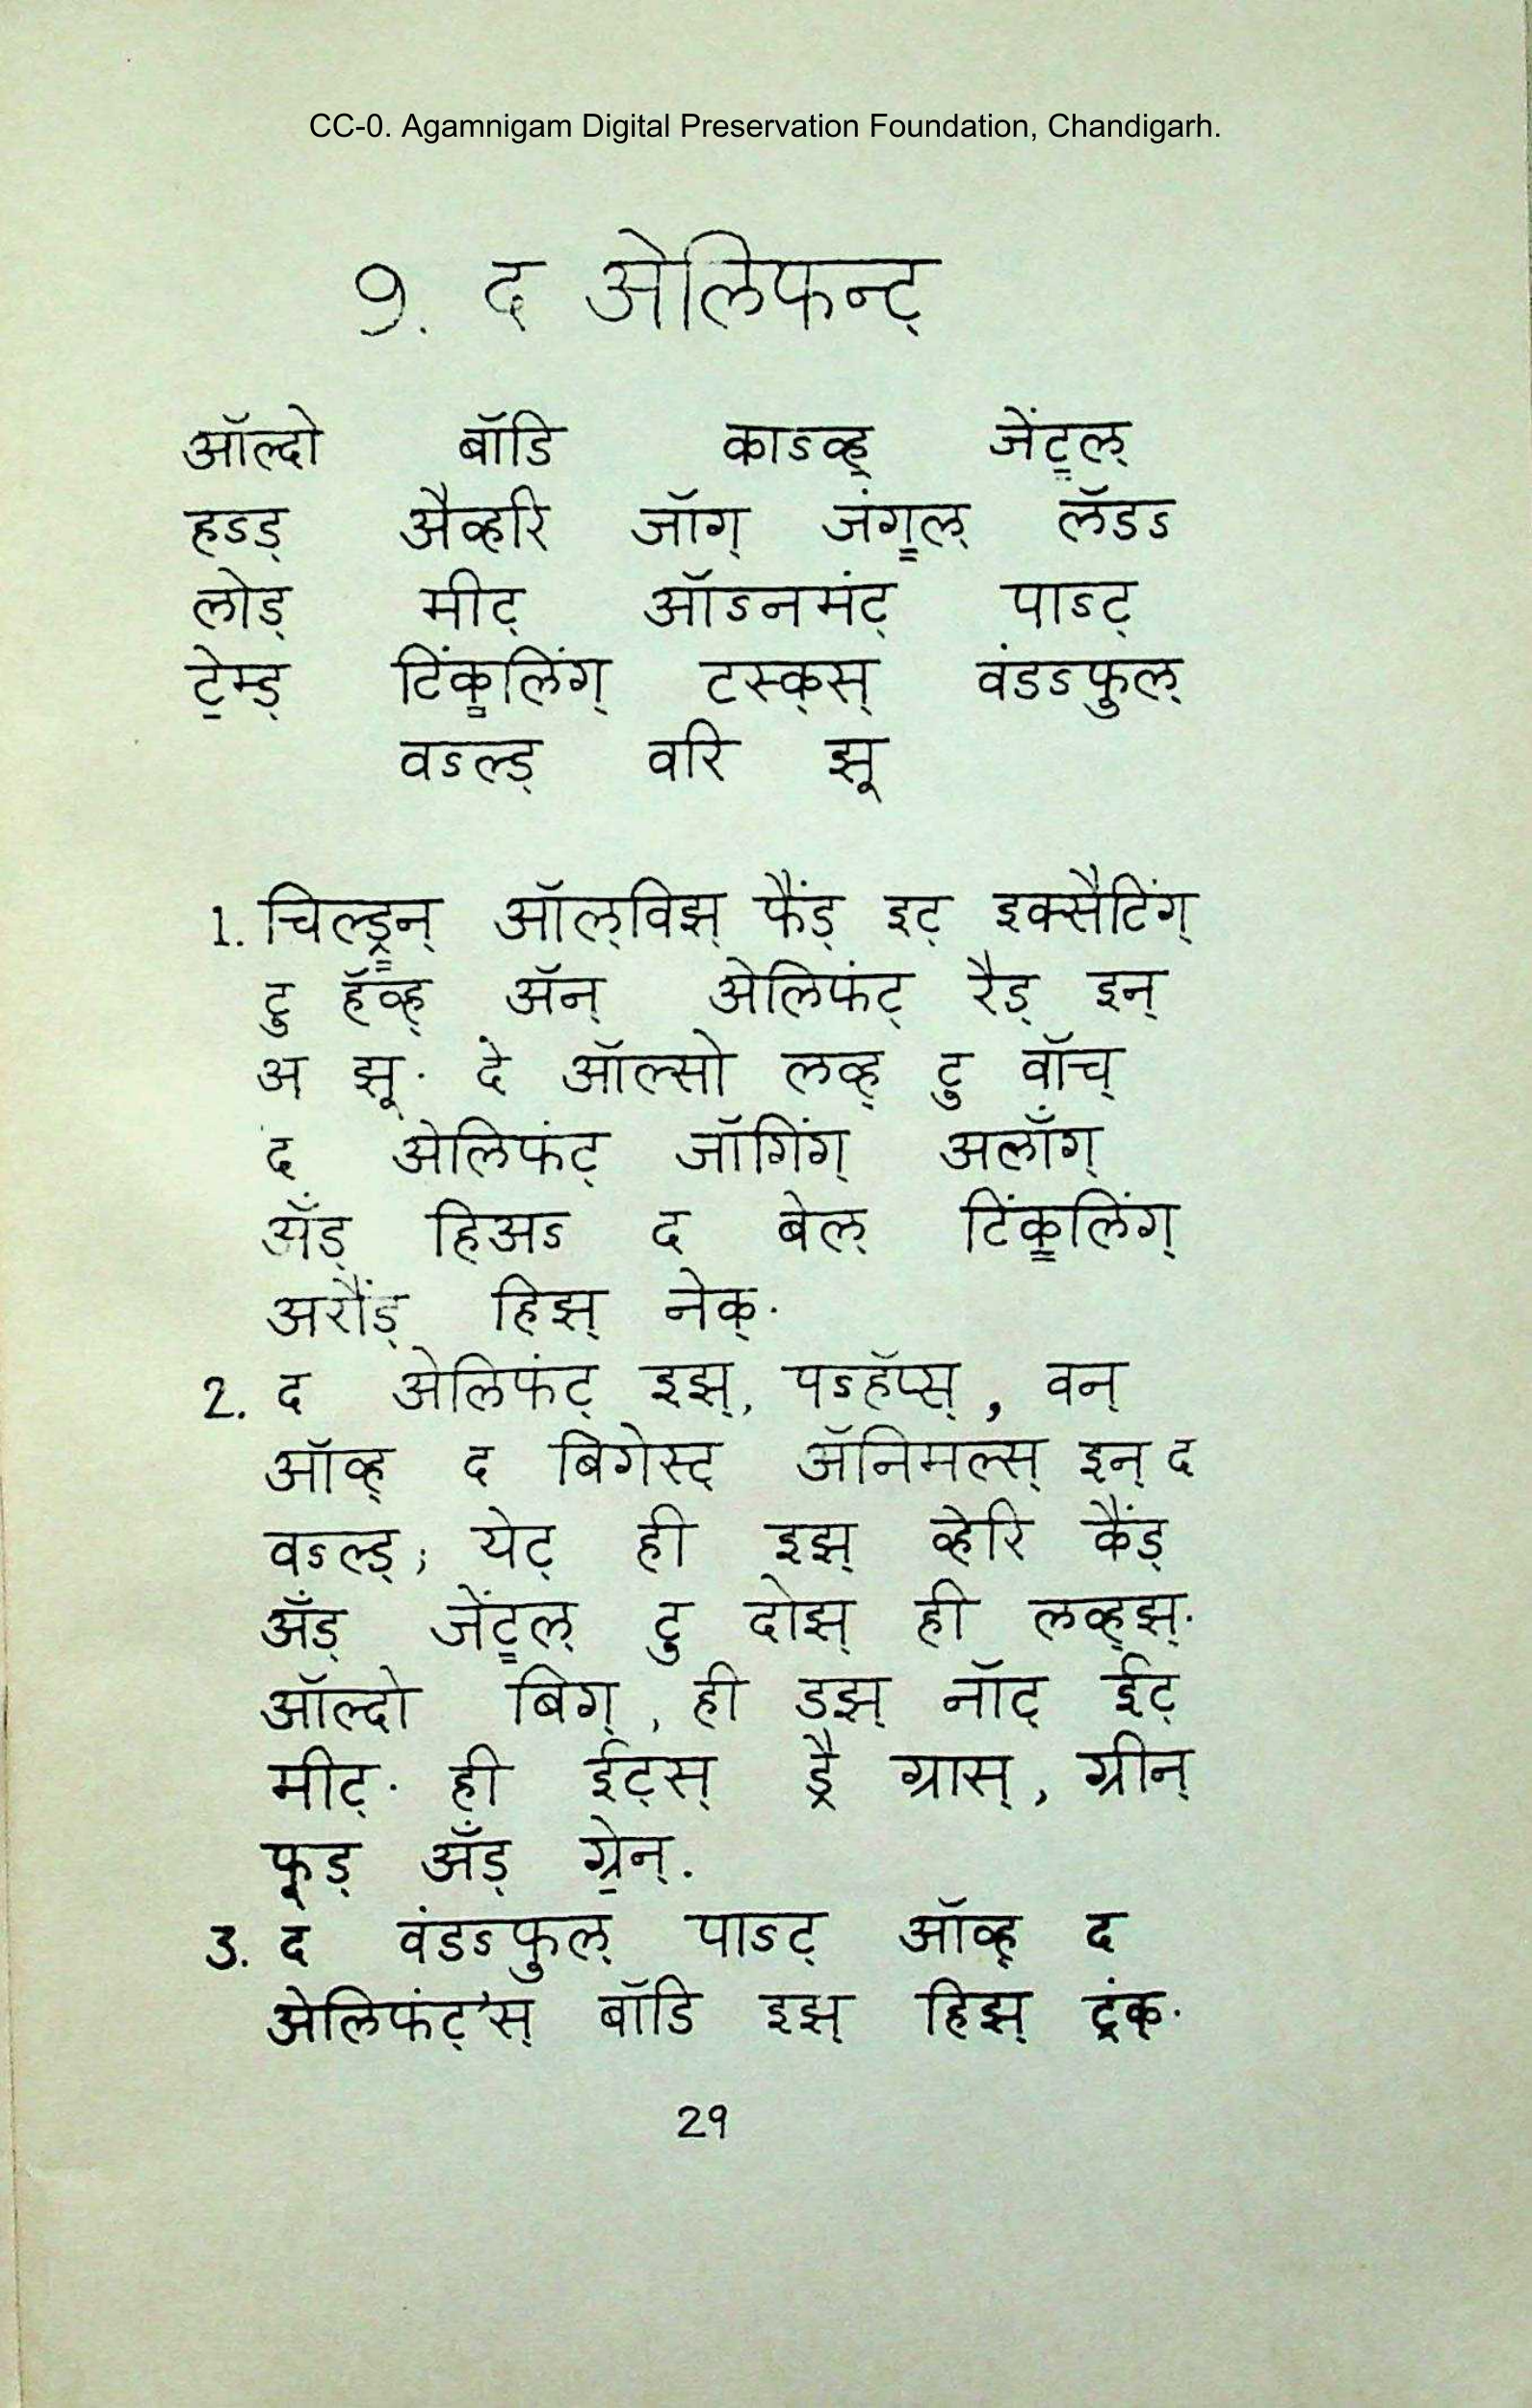 CC-0. Agamnigam Digital Preservation Foundation, Chandigarh.
9. द अेलिफन्ट्
ऑल्दो बॉडि काऽव्ह् जेंट्ल्
हऽड् अैव्हरि जॉग् जंग्ल् लॅडऽ
लोड् मीट् ऑऽनमंट् पाऽट्
टे॒म्ड् टिंक्लिंग् टस्क्स् वंडऽफुल्
वऽल्ड् वरि झू
1. चिल्ड्रन् ऑल्विझ् फैंड् इट् इक्सैटिंग्
टु हॅव्ह् अॅन् अेलिफंट् रैड् इन्
अ झू. दे ऑल्सो लव्ह् टु वॉच्
द अेलिफंट् जॉगिंग् अलाँग्
अँड् हिअऽ द बेल् टिंक्लिंग्
अरौंड् हिझ् नेक्.
2. द अेलिफंट् इझ्, पऽहॅप्स्, वन्
ऑव्ह् द बिगेस्ट् अॅनिमल्स् इन् द
वऽल्ड्; येट् ही इझ् व्हेरि कैंड्
अँड् जेंट्ल् टु दोझ् ही लव्ह्झ्.
ऑल्दो बिग्, ही डझ् नॉट् ईट्
मीट्. ही ईट्स् ड्रै ग्रास्, ग्रीन्
फूड् अँड् ग्रे॒न्.
3. द वंडऽफुल् पाऽट् ऑव्ह् द
अेलिफंट्'स् बॉडि इझ् हिझ् ट्रंक्.
29